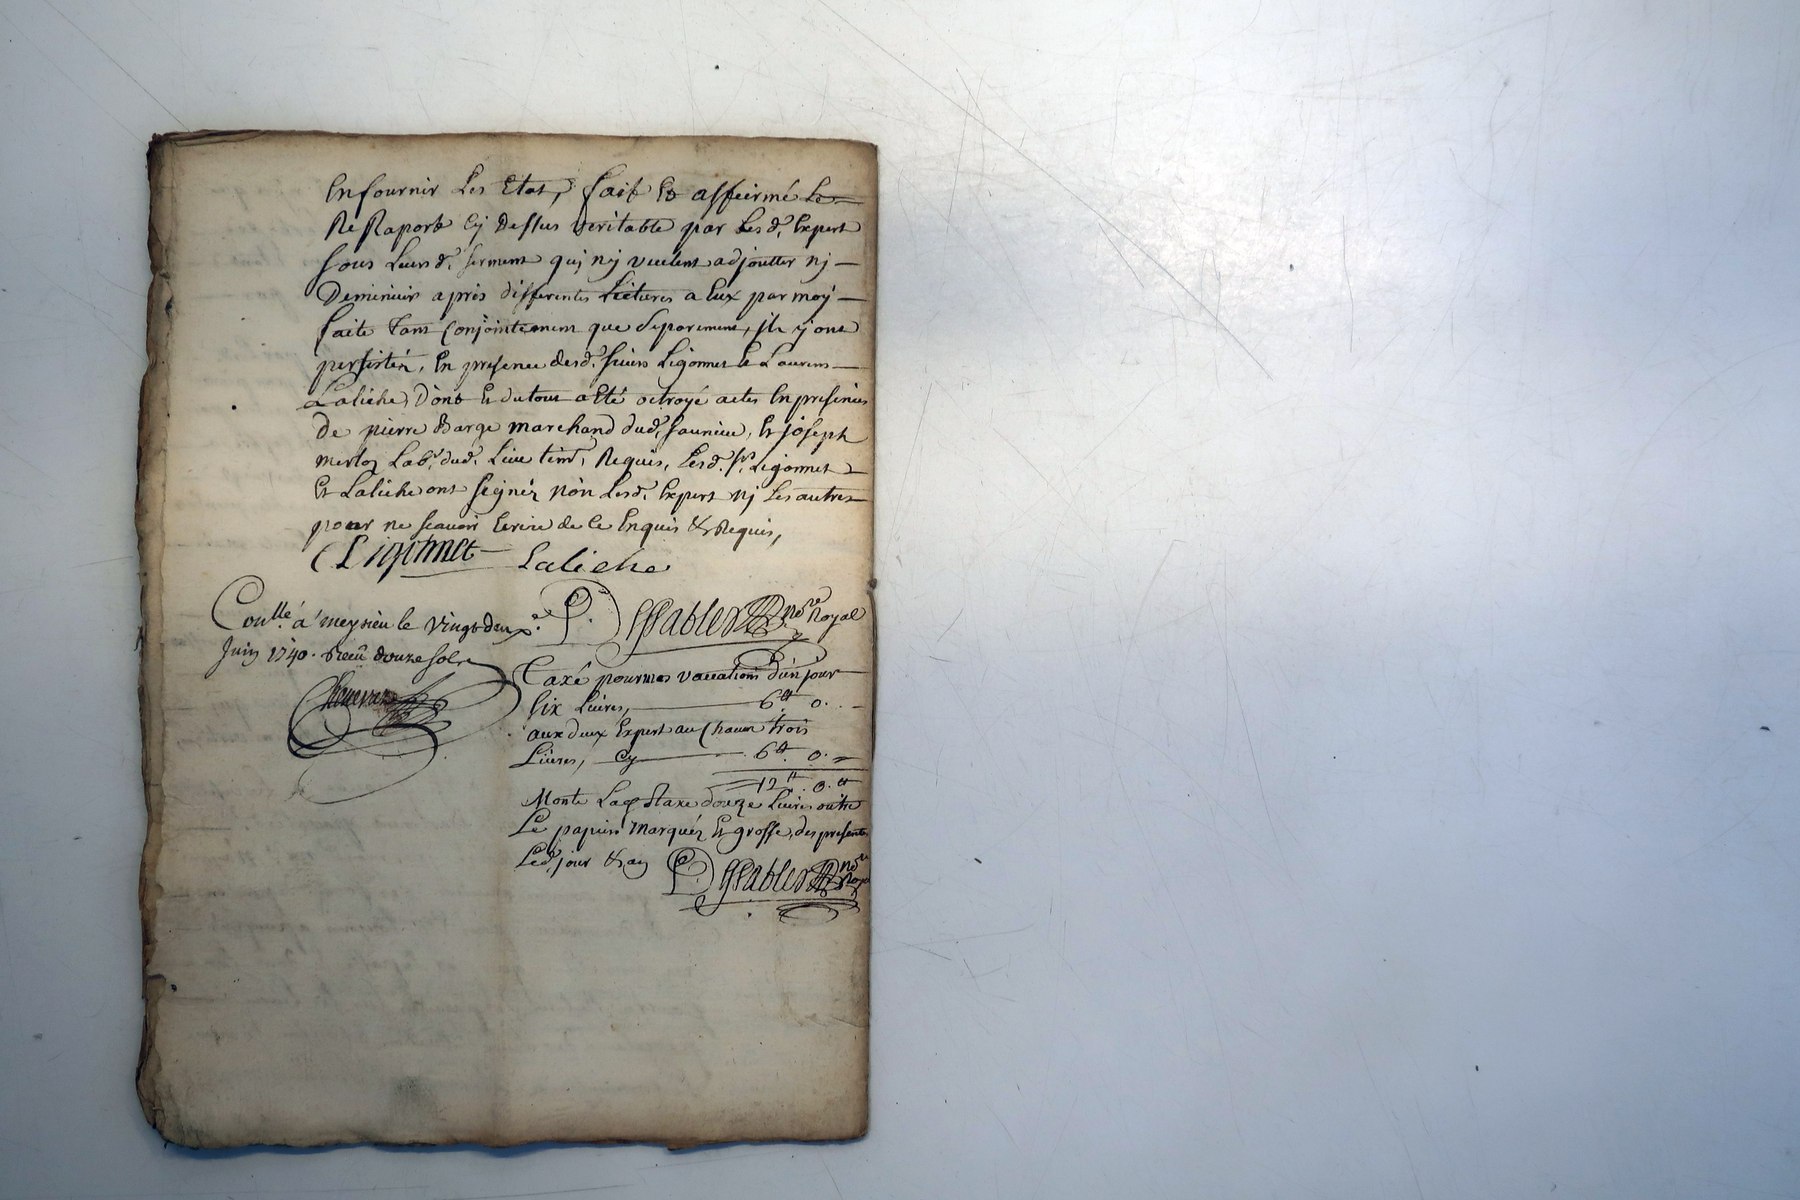 En fournir Les Etat, fait Et affeirmé Le
Re Raport Cy Dessus veritable par Les d. Expert
sous Leurs d. serment quj nÿ veulent adjoutter nj
Deminuir apres differentes Lectures a Eux par moÿ
faite Tant Conjointement que separement, jls ÿ ont
persistéz, En presence des d. sieurs Ligonnet Et Laurens
Laliche, Dont Et du tout a Eté octroyé actes En presences
de pierre Barge marchand dud. Et joseph
Merloz Lab.r dud. Lieu tem. Requis, Les d. srs Ligonnet
Et Laliche ont signéz non Les d. Expert nj Les autres
pour ne scavoir Ecrire de Ce Enquis & Requis,
Ligonnet Laliche
Coullé a meyzieu le vingt deux
Juin 1740. Receu douze sols
nore Royal
Taxé pour mes vacations d'un jour
six Livres, 6tt 0.
aux deux Expert au Chacun trois
Livres, Cy 6tt. 0.
12tt. 0.tt
Monte La taxe douze Livres outre
Le papier Marquéz Et grosse, des presentes
Led. jour & an
nore Royal